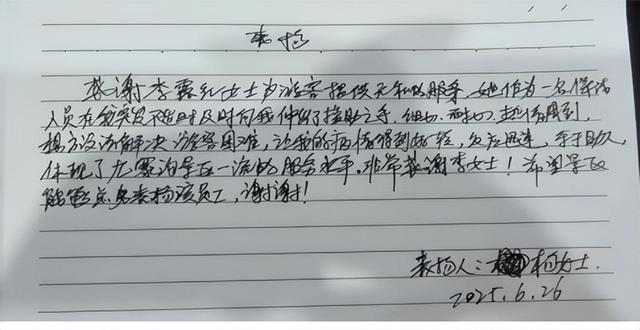 表扬
感谢李霞红女士为游客提供无私的服务,她作为一名保洁
人员在我突发不适时及时向我伸出了援助之手,细心、耐心、热情周到,
想方设法解决游客困难,让我的病情得到好转,反应迅速,乐于助人,
体现了九寨沟景区一流的服务水平。非常感谢李女士!希望景区
能重点表扬该员工,谢谢!
表扬人:杨女士.
2025.6.26